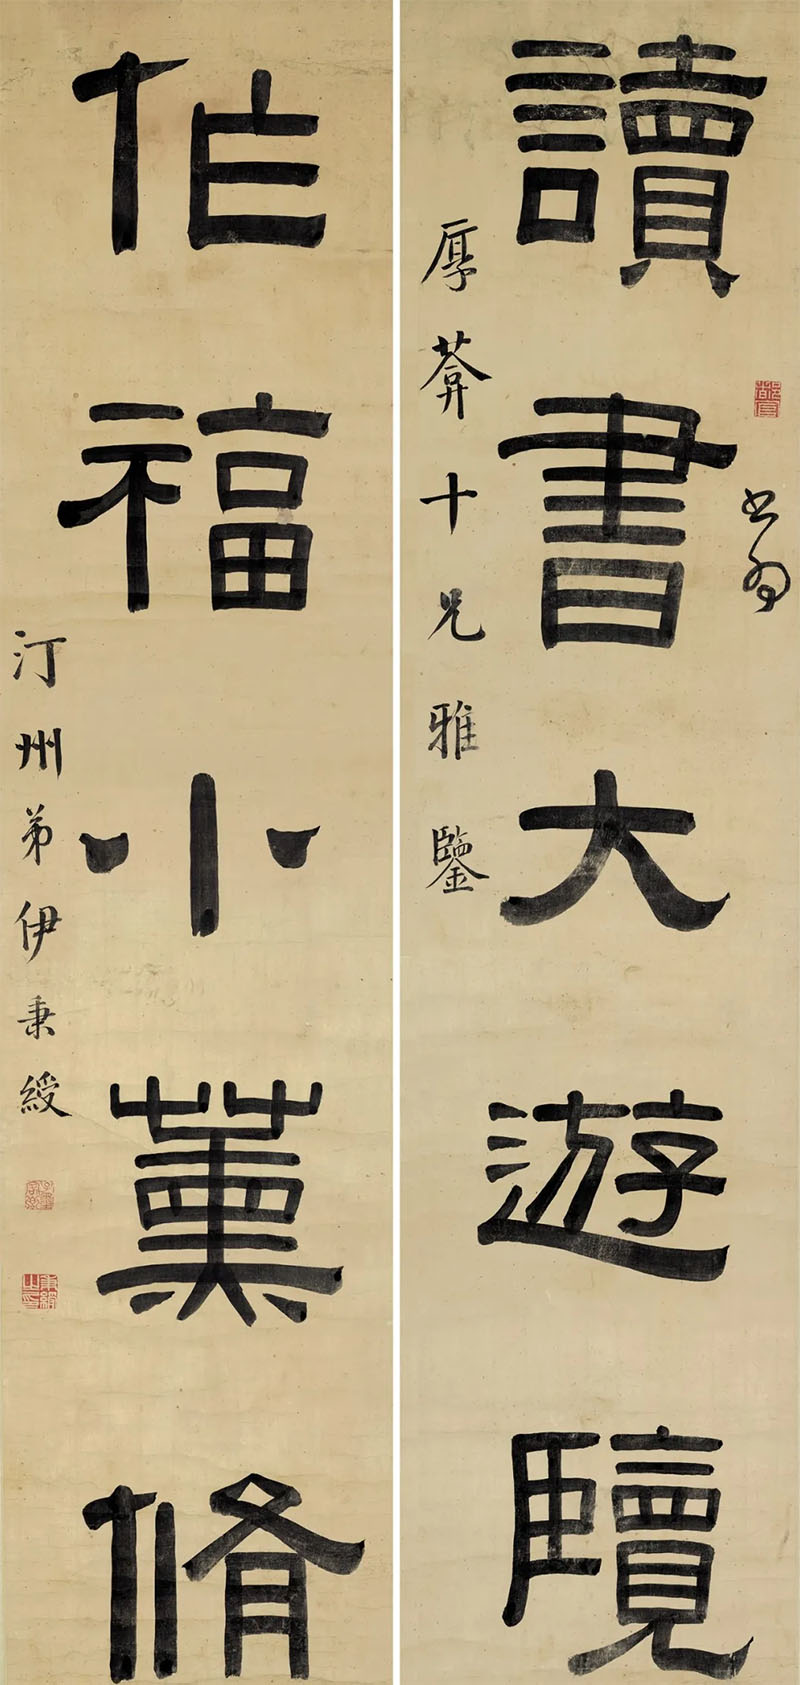 讀書大遊覽
厚莽十兄雅鑒
作福小薰脩
汀州弟伊秉綬